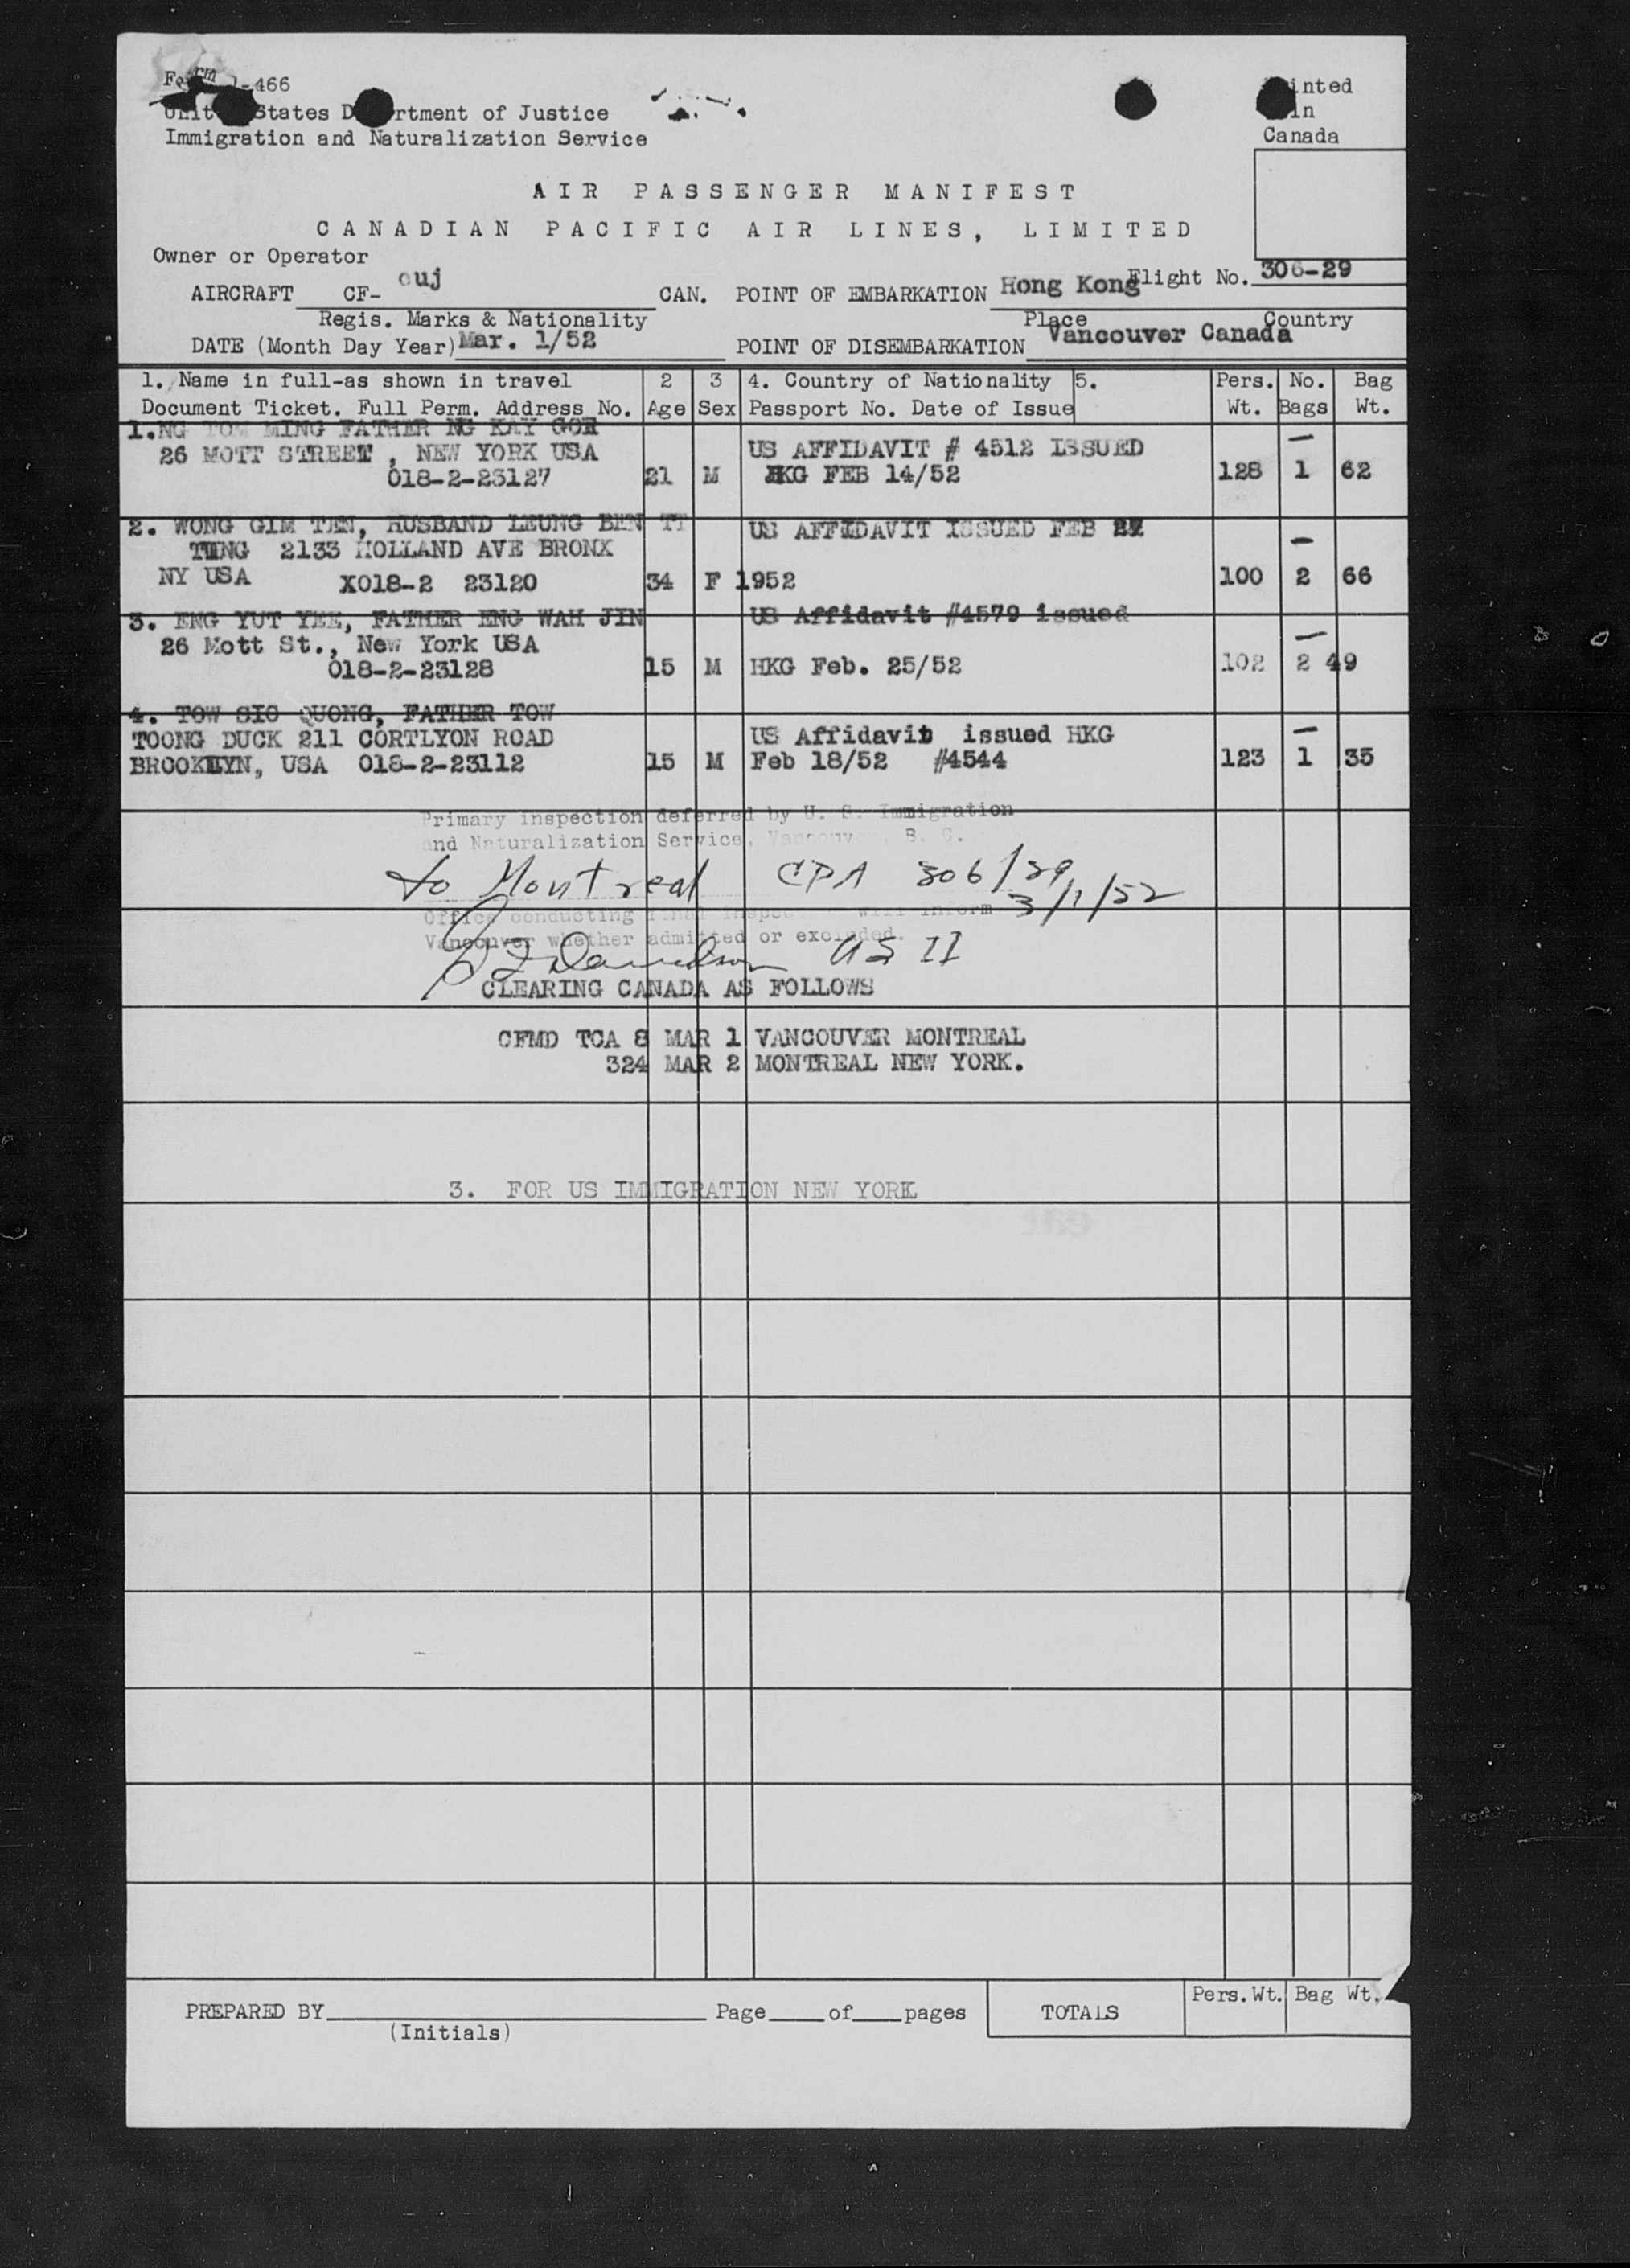 Form I-466
United States Department of Justice
Immigration and Naturalization Service
Printed
in
Canada
AIR PASSENGER MANIFEST
CANADIAN PACIFIC AIR LINES, LIMITED
Owner or Operator
AIRCRAFT CF- cuj CAN. POINT OF EMBARKATION Hong Kong Flight No. 306-29
Regis. Marks & Nationality Place Country
DATE (Month Day Year) Mar. 1/52 POINT OF DISEMBARKATION Vancouver Canada
1. Name in full-as shown in travel 2 3 4. Country of Nationality 5. Pers. No. Bag
Document Ticket. Full Perm. Address No. Age Sex Passport No. Date of Issue Wt. Bags Wt.
1. NG TOW MING FATHER NG KAY GOR
26 MOTT STREET , NEW YORK USA US AFFIDAVIT # 4512 ISSUED —
018-2-23127 21 M HKG FEB 14/52 128 1 62
2. WONG GIM TEN, HUSBAND LEUNG BEN US AFFIDAVIT ISSUED FEB
TUNG 2133 HOLLAND AVE BRONX —
NY USA X018-2 23120 34 F 1952 100 2 66
3. ENG YUT YEE, FATHER ENG WAH JIN US Affidavit #4579 issued
26 Mott St., New York USA —
018-2-23128 15 M HKG Feb. 25/52 102 2 49
4. TOW SIO QUONG, FATHER TOW
TOONG DUCK 211 CORTLYON ROAD US Affidavit issued HKG —
BROOKLYN, USA 018-2-23112 15 M Feb 18/52 #4544 123 1 35
Primary inspection deferred by U. S. Immigration
and Naturalization Service, Vancouver, B. C.
to Montreal CPA 306/29
3/1/52
Office conducting final inspection will inform
Vancouver whether admitted or excluded.
Davidson US II
CLEARING CANADA AS FOLLOWS
CFMD TCA 8 MAR 1 VANCOUVER MONTREAL
324 MAR 2 MONTREAL NEW YORK.
3. FOR US IMMIGRATION NEW YORK
Pers. Wt. Bag Wt.
PREPARED BY Page of pages TOTALS
(Initials)